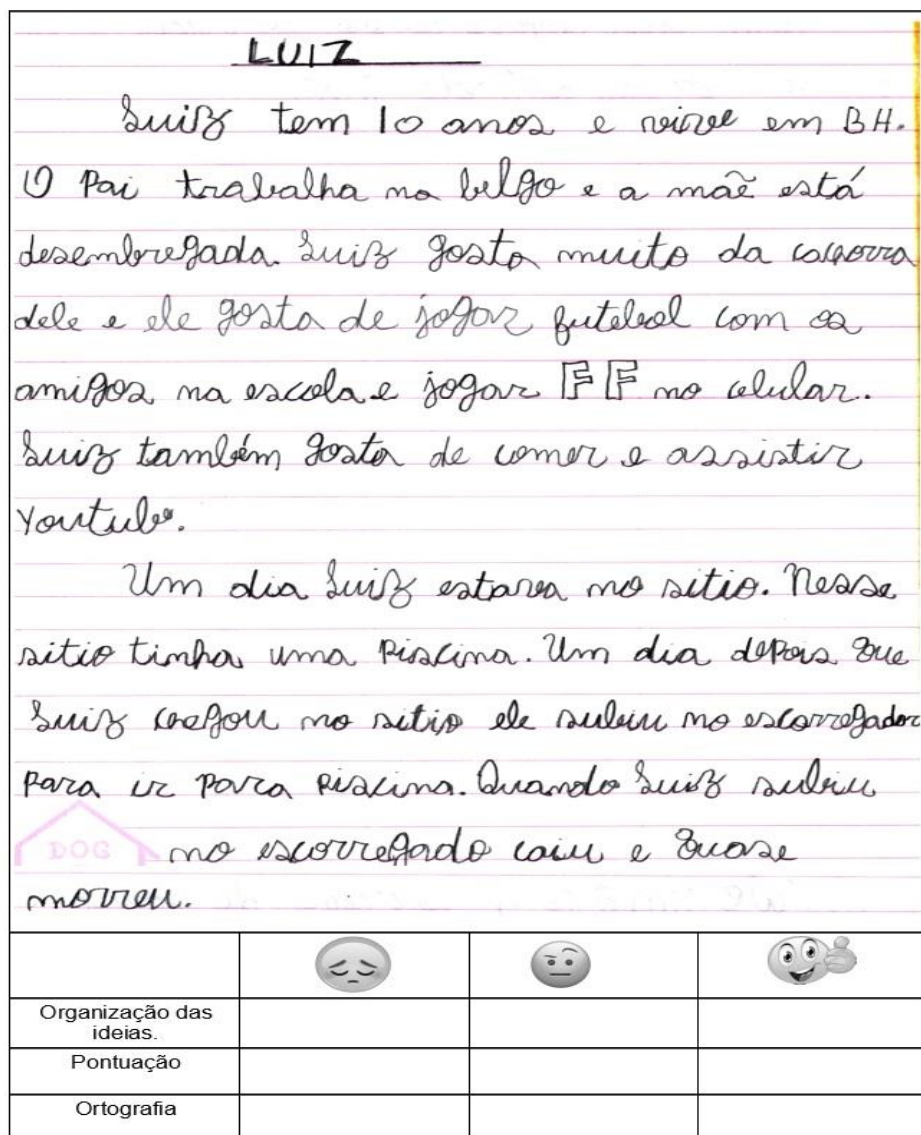 LUIZ
Luiz tem 10 anos e vive em BH.
O Pai trabalha na belgo e a mãe está
desembregada. Luiz gosta muito da cachorra
dele e ele gosta de jogar futebol com os
amigos na escola e jogar FF no celular.
Luiz também gosta de comer e assistir
Youtube.
Um dia Luiz estava no sitio. Nesse
sitio tinha uma piscina. Um dia depois que
Luiz chegou no sitio ele subiu no escorregador
para ir para piscina. Quando Luiz subiu
DOG no escorregado caiu e quase
morreu.
Organização das
ideias.
Pontuação
Ortografia